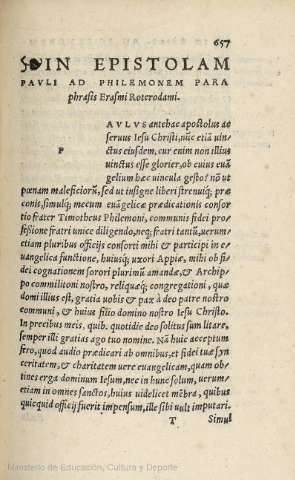 657
IN EPISTOLAM
PAVLI AD PHILEMONEM PARA
phrasis Erasmi Roterodami.
P
AVLVS antehac apostolus ac
seruus Iesu Christi, nũc etiã uin-
ctus eiusdem, cur enim non illius
uinctus esse glorier, ob cuius euã
gelium hæc uincula gesto? nõ ut
pœnam maleficiorũ, sed ut insigne liberi strenuiq; præ
conis, simulq; mecum euãgelicæ prædicationis consor
tio frater Timotheus Philemoni, communis fidei pro-
fessione fratri unice diligendo, neq; fratri tantũ, uerum-
etiam pluribus officijs consorti mihi & participi in e-
uangelica functione, huiusq; uxori Appiæ, mihi ob fi
dei cognationem sorori plurimũ amandæ, & Archip-
po commilitoni nostro, reliquæq; congregationi, quæ
domi illius est, gratia uobis & pax à deo patre nostro
communi, & huius filio domino nostro Iesu Christo.
In precibus meis, quib. quotidie deo solitus sum litare,
semper illi gratias ago tuo nomine. Nã huic acceptum
fero, quod audio prædicari ab omnibus, et fidei tuæ syn
ceritatem, & charitatem uere euangelicam, quam ob-
tines erga dominum Iesum, nec in hunc solum, uerum-
etiam in omnes sanctos, huius uidelicet mẽbra, quibus
quicquid officij fuerit impensum, ille sibi uult imputari.
T Simul
Ministerio de Educación, Cultura y Deporte